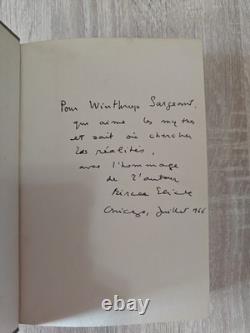 Pour Winthrop Sargeant,
qui aime les mythes
et sait où chercher
les réalités,
avec l'hommage
de l'auteur
Mircea Eliade
Chicago, Juillet 1966
thumbimg.com